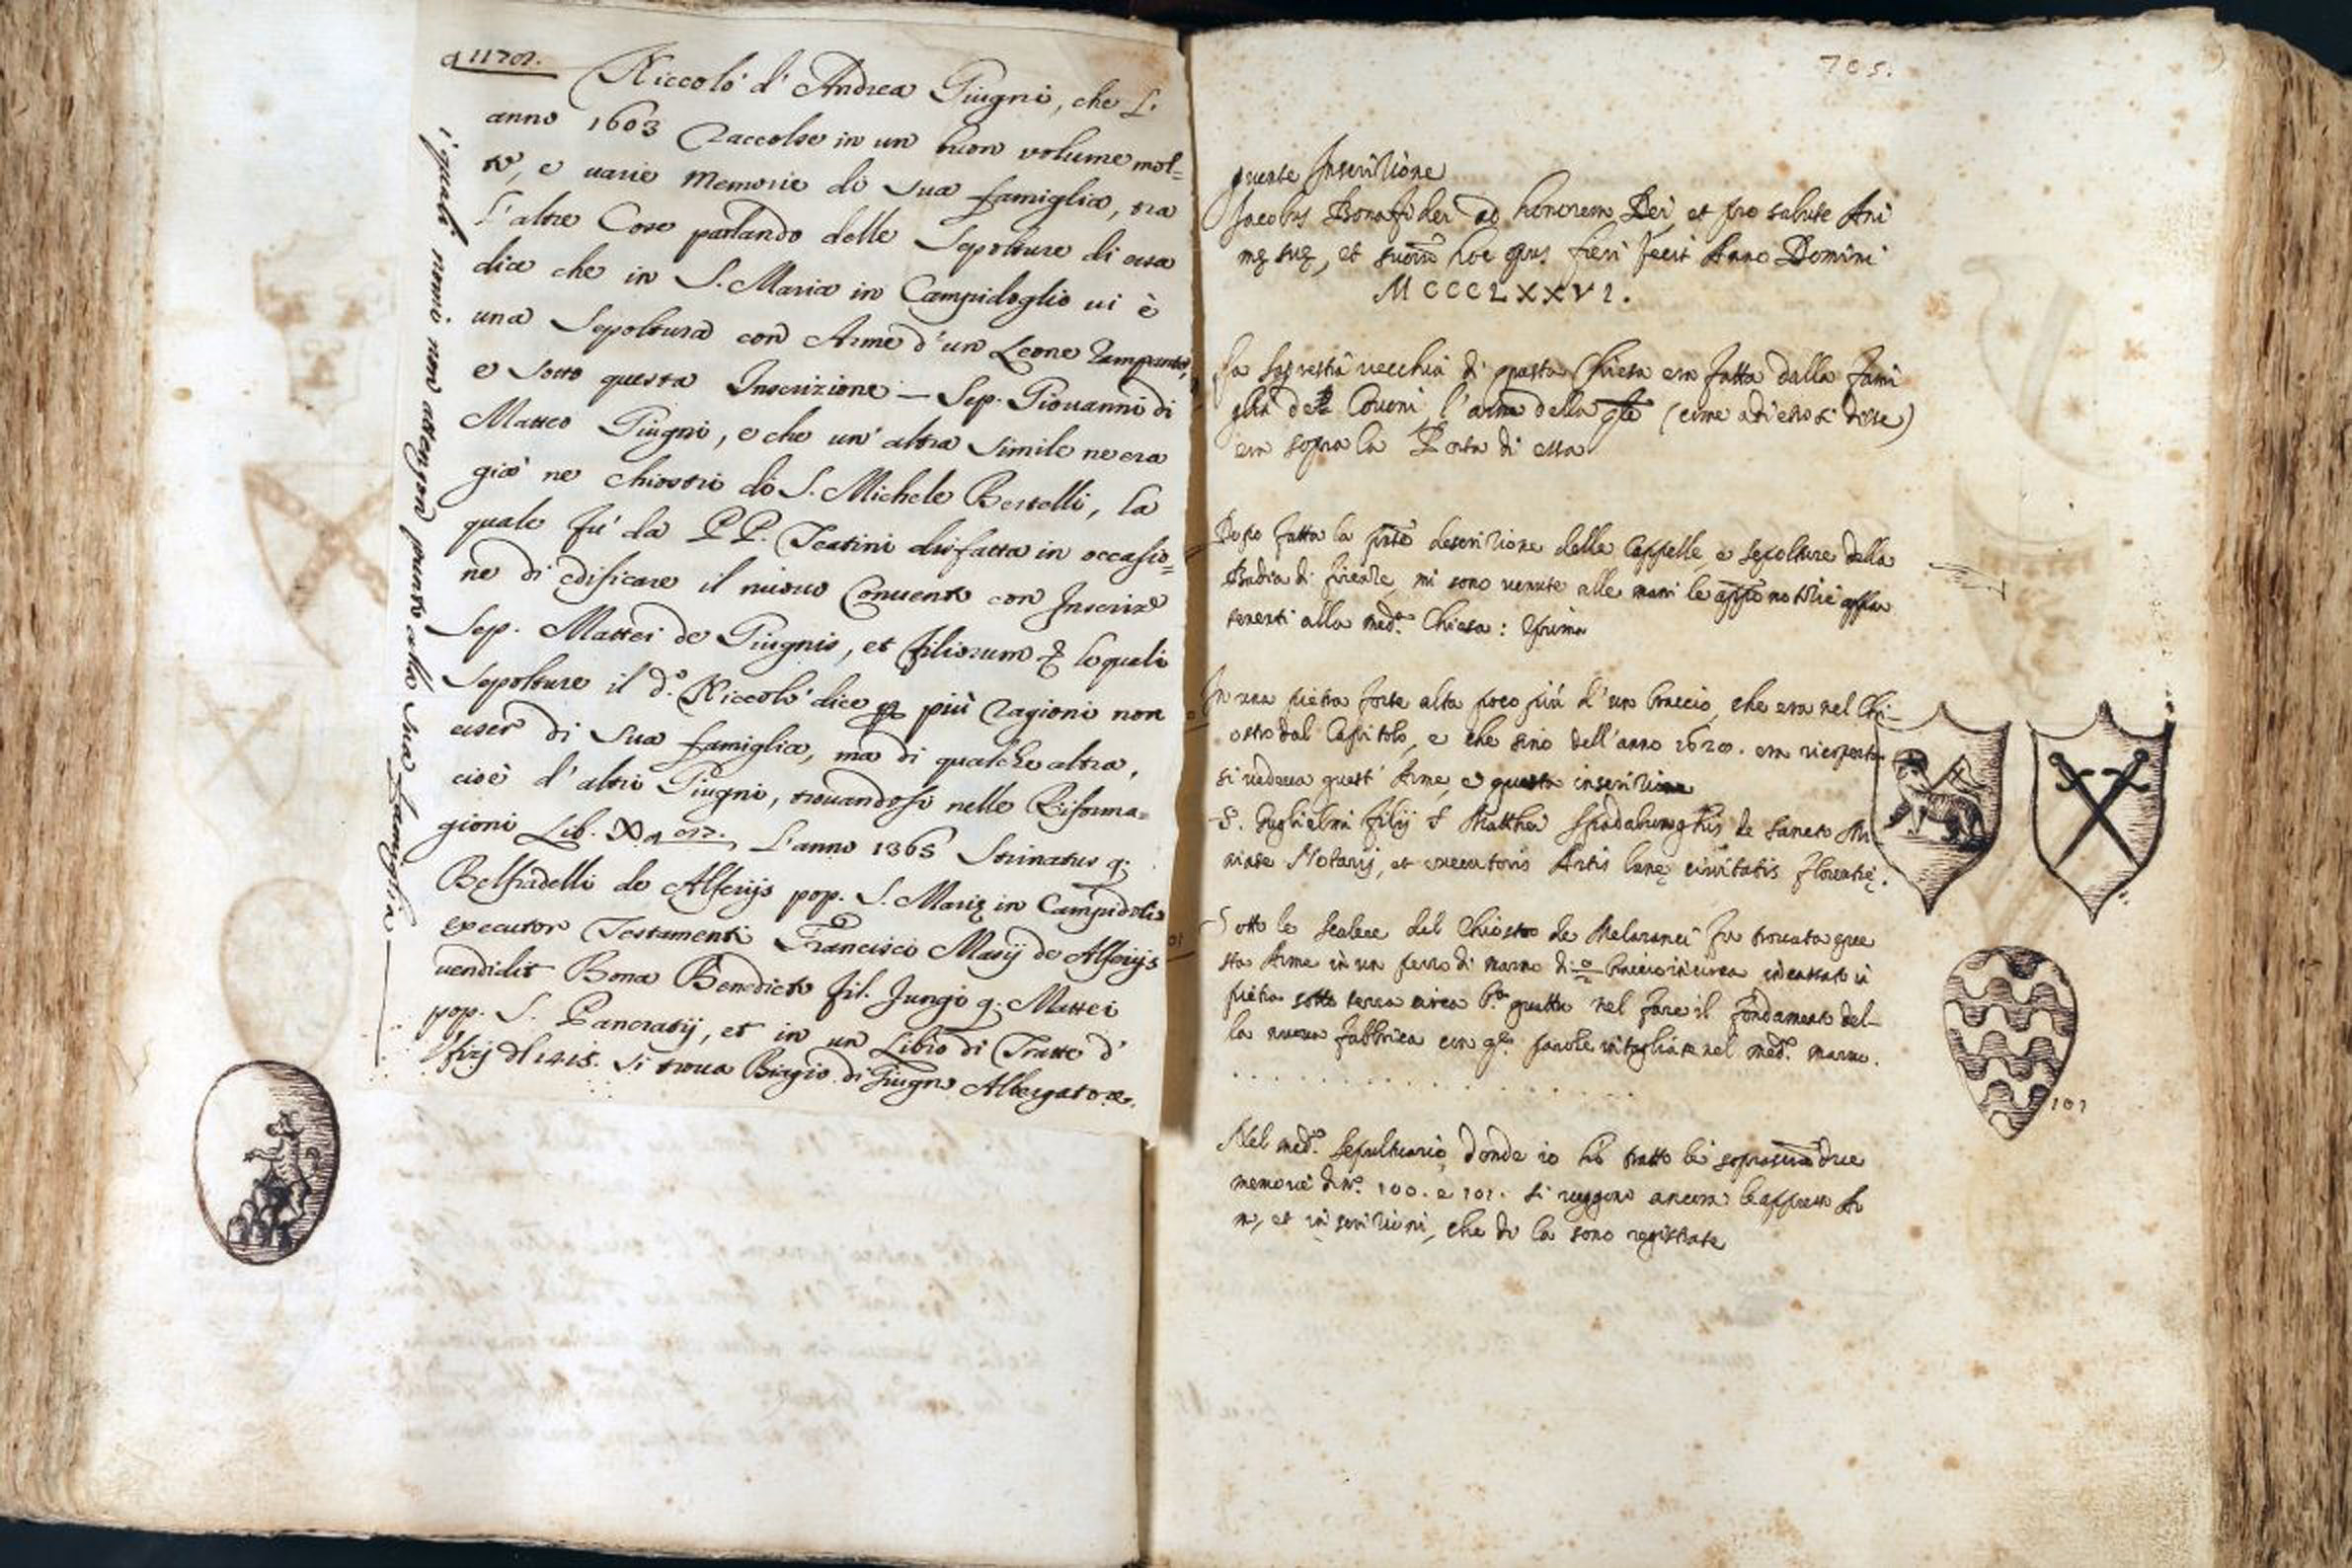 Niccolò d' Andrea Giugni, che l'
anno 1603 raccolse in un buon volume mol=
te, e varie Memorie di Sua famiglia, tra
l'altre Cose parlando delle Sepolture di essa
dice che in S. Maria in Campidoglio vi è
una Sepoltura con Arme d'un Leone rampante,
e sotto questa Inscrizione — Sep. Giovanni di
Matteo Giugni, e che un' altra simile ne era
già ne chiostri di S. Michele Bertelli, la
quale fu' da PP. Teatini disfatta in occasio=
ne di edificare il nuovo Convento con Inscrize
Sep. Mattei de Giugnis, et filiorum le quali
Sepolture il d.º Niccolò dice più ragioni non
esser di Sua famiglia, ma di qualche altra,
cioè d' altri Giugni, trovandosi nelle Riforma=
gioni Lib. L'anno 1365 Strinatus q.
Belfradelli de Alferijs pop. S. Marię in Campidolio
executor Testamenti Francisci Masij de Alferijs
vendidit Bona Benedicto fil. Jungi q. Mattei
pop. S. Pancratij, et in un Libro di Tratte d'
Ufizj dl 1415. Si trova Biagio di Giugno Albergatore.
i quali nomi non attengon punto alla sua famiglia
705.
quente Inscrizione
Jacobus Bonafidei ad honorem Dei, et pro salute Ani
mę suę, et suorũ hoc opus fieri fecit Anno Domini
MCCCLXXVI.
La Sagrestia vecchia di questa Chiesa era fatta dalla Fami
glia de Covoni, l'arme della qle (come adietro si disse)
era sopra la Porta di essa
Dopo fatta la pñte descrizione delle Cappelle, e sepolture della
Badia di firenze, mi sono venute alle mani le appõ notizie appar
tenenti alla med.ª Chiesa: Prima
In una pietra forte alta poco più d'un braccio, che era nel Chi-
ostro dal Capitolo, e che sino dell'anno 1620. era ricoperta
si vedeva quest' Arme, e questa inscrizione
S. Guglielmi filij S Matthei Spadalunghis de Sancto Mi-
niate Notarij, et executoris Artis lanę civitatis florentię.
Sotto le Scalere del Chiostro de Melaranci fu trovata que
sta Arme in un pezzo di marmo di braccio in circa incassato in
pietra sotto terra circa b.ª quattro nel fare il fondamento del-
la nuova fabbrica con q.e parole intagliate nel med.º marmo.
. . . . . . . . . . . . . . .
101
Nel med.º Sepultuario, donde io hò tratto le soprascritte due
memorie di n.º 100. e 101. si veggono ancora le appresso Ar
mi, et inscrizioni, che di la sono registrate